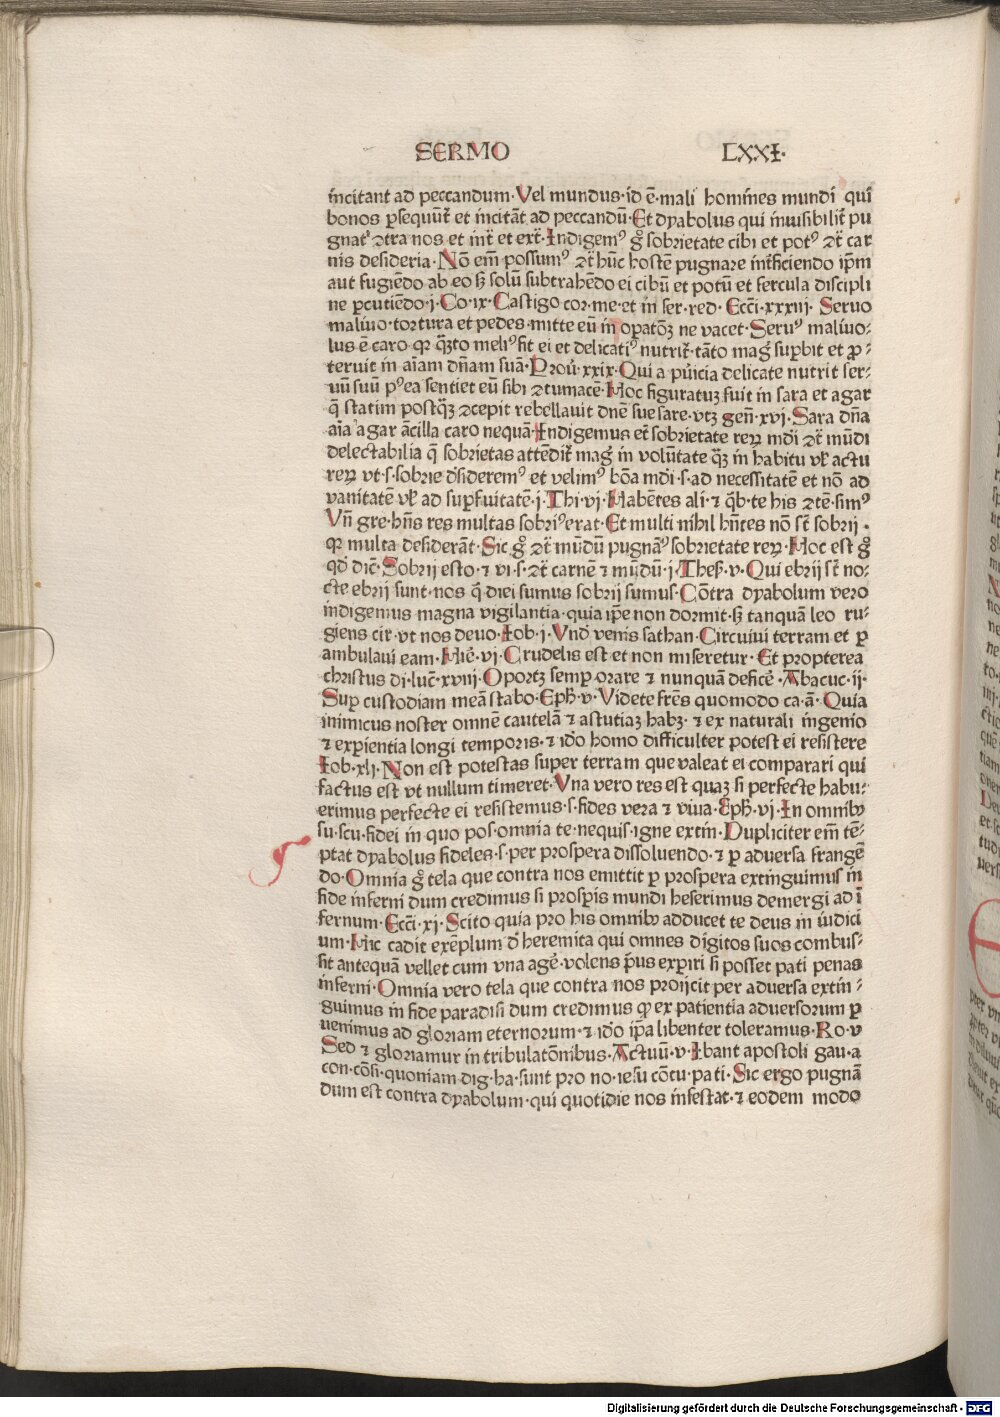 SERMO LXXI·
incitant ad peccandum·Vel mundus·id ē·mali homines mundi qui
bonos ꝑsequūt᷑ et incitāt ad peccandū·Et dyabolus qui inuisibilit᷑ pu
gnat᷑ ꝯtra nos et int᷑ et ext᷑·Indigemꝰ gͦ sobrietate cibi et potꝰ ꝯt᷑ car
nis desideria·Nō em̄ possumꝰ ꝯt᷑ hūc hostē pugnare int᷑ficiendo ip̄m
aut fugiēdo ab eo sꝫ solū subtrahēdo ei cibū et potū et fercula discipli
ne ꝑcutiēdo·j·Co·ix·Castigo cor·me·et in ser·red·Ecc̄i·xxxiij·Seruo
maliuo·tortura et pedes·mitte eū in oꝑatōꝫ ne vacet·Seruꝰ maliuo-
lus ē caro qꝛ qͣꝫto meliꝰ fit ei et delicatiꝰ nutrit᷑·tāto magꝭ suꝑbit et ꝓ-
teruit in aīam dn̄am suā·Prou᷑·xxix·Qui a pu᷑icia delicate nutrit ser-
uū suū pꝰea sentiet eū sibi ꝯtumacē·Hoc figuratuꝫ fuit in sara et agar
q̄ statim postqͣꝫ ꝯcepit rebellauit dn̄e sue sare·vtꝫ gen̄·xvj·Sara dn̄a
aīa agar ācilla caro nequā·Indigemus et᷑ sobrietate reꝝ mūdi ꝯt᷑ mūdi
delectabilia q̄ sobrietas attēdit᷑ magꝭ in volūtate qͣꝫ in habitu vł actu
reꝝ vt·s·sobrie dʼsideremꝰ et velimꝰ bōa mūdi·s·ad necessitatē et nō ad
vanitatē vł ad suꝑfluitatē·j·Thi·vj·Habētes ali·⁊ qͥb·te his ꝯtē·simꝰ
Vn̄ gre·hn̄s res multas sobriꝰ erat·Et multi nihil hn̄tes nō st̄ sobrij·
qꝛ multa desiderāt·Sic gͦ ꝯt᷑ mūdū pugnāꝰ sobrietate reꝝ·Hoc est gͦ
qd̕ dic̄·Sobrij esto·⁊ vi·s·ꝯt᷑ carnē ⁊ mūdū·j·Theß·v·Qui ebrij st̄ no-
cte ebrij sunt·nos q̄ diei sumus sobrij sumus·Cōtra dyabolum vero
indigemus magna vigilantia·quia ip̄e non dormit·sꝫ tanquā leo ru-
giens cir·vt nos deuo·Iob·j·Vnd̕ venis sathan·Circuiui terram et ꝑ
ambulaui eam·Hie᷑·vj·Crudelis est et non miseretur·Et propterea
christus di·luc̄·xviij·Oportꝫ semꝑ orare ⁊ nunquā defice᷑·Abacuc·ij·
Suꝑ custodiam meā stabo·Epħ·v·Videte fr̄es quomodo ca·ā·Quia
inimicus noster omnē cautelā ⁊ astutiaꝫ habꝫ·⁊ ex naturali ingenio
⁊ exꝑientia longi temporis·⁊ iďo homo difficulter potest ei resistere
Iob·xlj·Non est potestas super terram que valeat ei comparari qui
factus est vt nullum timeret·Vna vero res est quaꝫ si perfecte habu-
erimus perfecte ei resistemus·s·fides veꝛa ⁊ viua·Epħ·vj·In omnibꝰ
su·scu·fidei in quo pos·omnia te·nequis·igne extin·Dupliciter em̄ tē-
ptat dyabolus fideles·s·per prospera dissoluendo·⁊ ꝑ aduersa frangē
do·Omnia gͦ tela que contra nos emittit ꝑ prospera extinguimus in
fide inferni dum credimus si prosꝑis mundi heserimus demergi ad ī
fernum·Ecc̄i·xj·Scito quia pro his omnibꝰ adducet te deus in iudici
um·Hic cadit exēplum dʼ heremita qui omnes digitos suos combus-
sit antequā vellet cum vna age᷑·volens p̄us exꝑiri si posset pati penas
inferni·Omnia vero tela que contra nos proijcit per aduersa extin-
guimus in fide paradisi dum credimus ꝙ ex patientia aduersorum ꝑ
uenimus ad gloriam eternorum·⁊ iďo ip̄a libenter toleramus·Ro·v
Sed ⁊ gloriamur in tribulatōnibus·Actuū·v·Ibant apostoli gau·a
con·cōsi·quoniam dig·ha·sunt pro no·iesu cōtu·pati·Sic ergo pugnā
dum est contra dyabolum·qui quotidie nos infestat·⁊ eodem modo
Digitalisierung gefördert durch die Deutsche Forschungsgemeinschaft - DFG